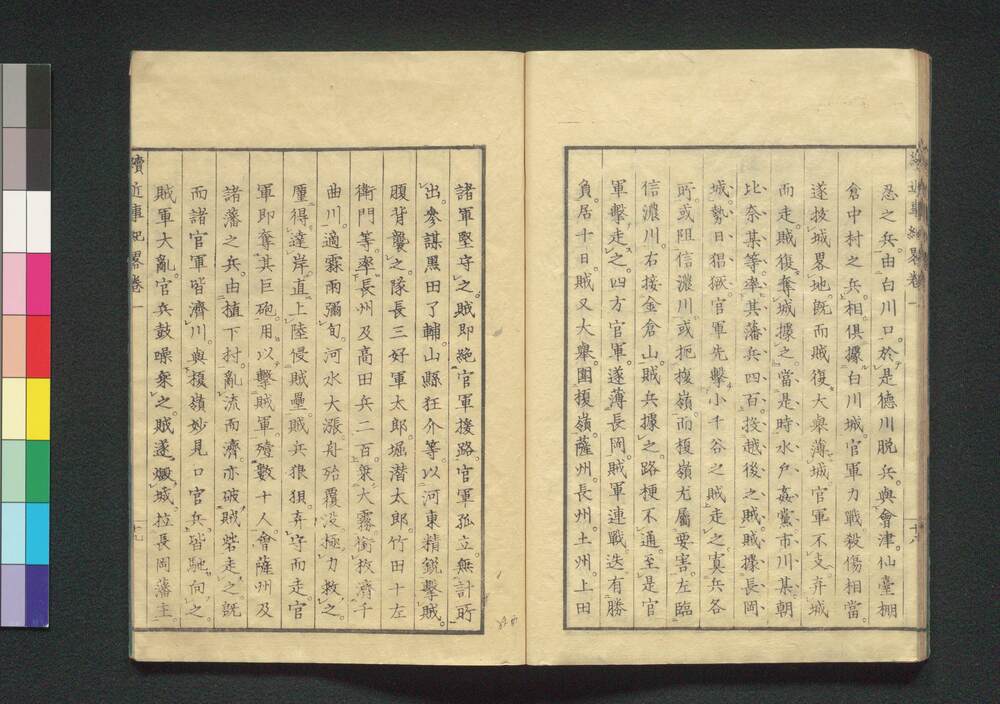 續近事紀畧卷一
忍之兵由白川口於是德川脱兵與會津仙臺棚
倉中村之兵相倶據白川城官軍力戰殺傷相當
遂拔城畧地既而賊復大舉薄城官軍不支弃城
而走賊復奪城據之當是時水戶姦黨市川某朝
比奈某等率其藩兵四百投越後之賊賊據長岡
城勢日猖獗官軍先擊小千谷之賊走之寘兵各
所或阻信濃川或扼榎嶺而榎嶺尤屬要害左臨
信濃川右接金倉山賊兵據之路梗不通至是官
軍擊走之四方官軍遂薄長岡賊軍連戰迭有勝
負居十日賊又大舉圍榎嶺薩州長州土州上田
諸軍堅守之賊即絶官軍援路官軍孤立無計所
出參謀黑田了輔山縣狂介等以河東精銳擊賊
腹背襲之隊長三好軍太郎堀潜太郎竹田十左
衛門等率長州及高田兵二百衆大霧衝枚濟千
曲川適霖雨彌旬河水大漲舟殆覆没極力救之
厪得達岸直上陸侵賊壘賊兵狼狽弃守而走官
軍即奪其巨砲用以擊賊軍殪數十人會薩州及
諸藩之兵由植下村亂流而濟亦破賊砦走之既
而諸官軍皆濟川與榎嶺妙見口官兵皆馳向之
賊軍大亂官兵鼓噪乗之賊遂燬城拉長岡藩主
續近事紀畧卷一
十九